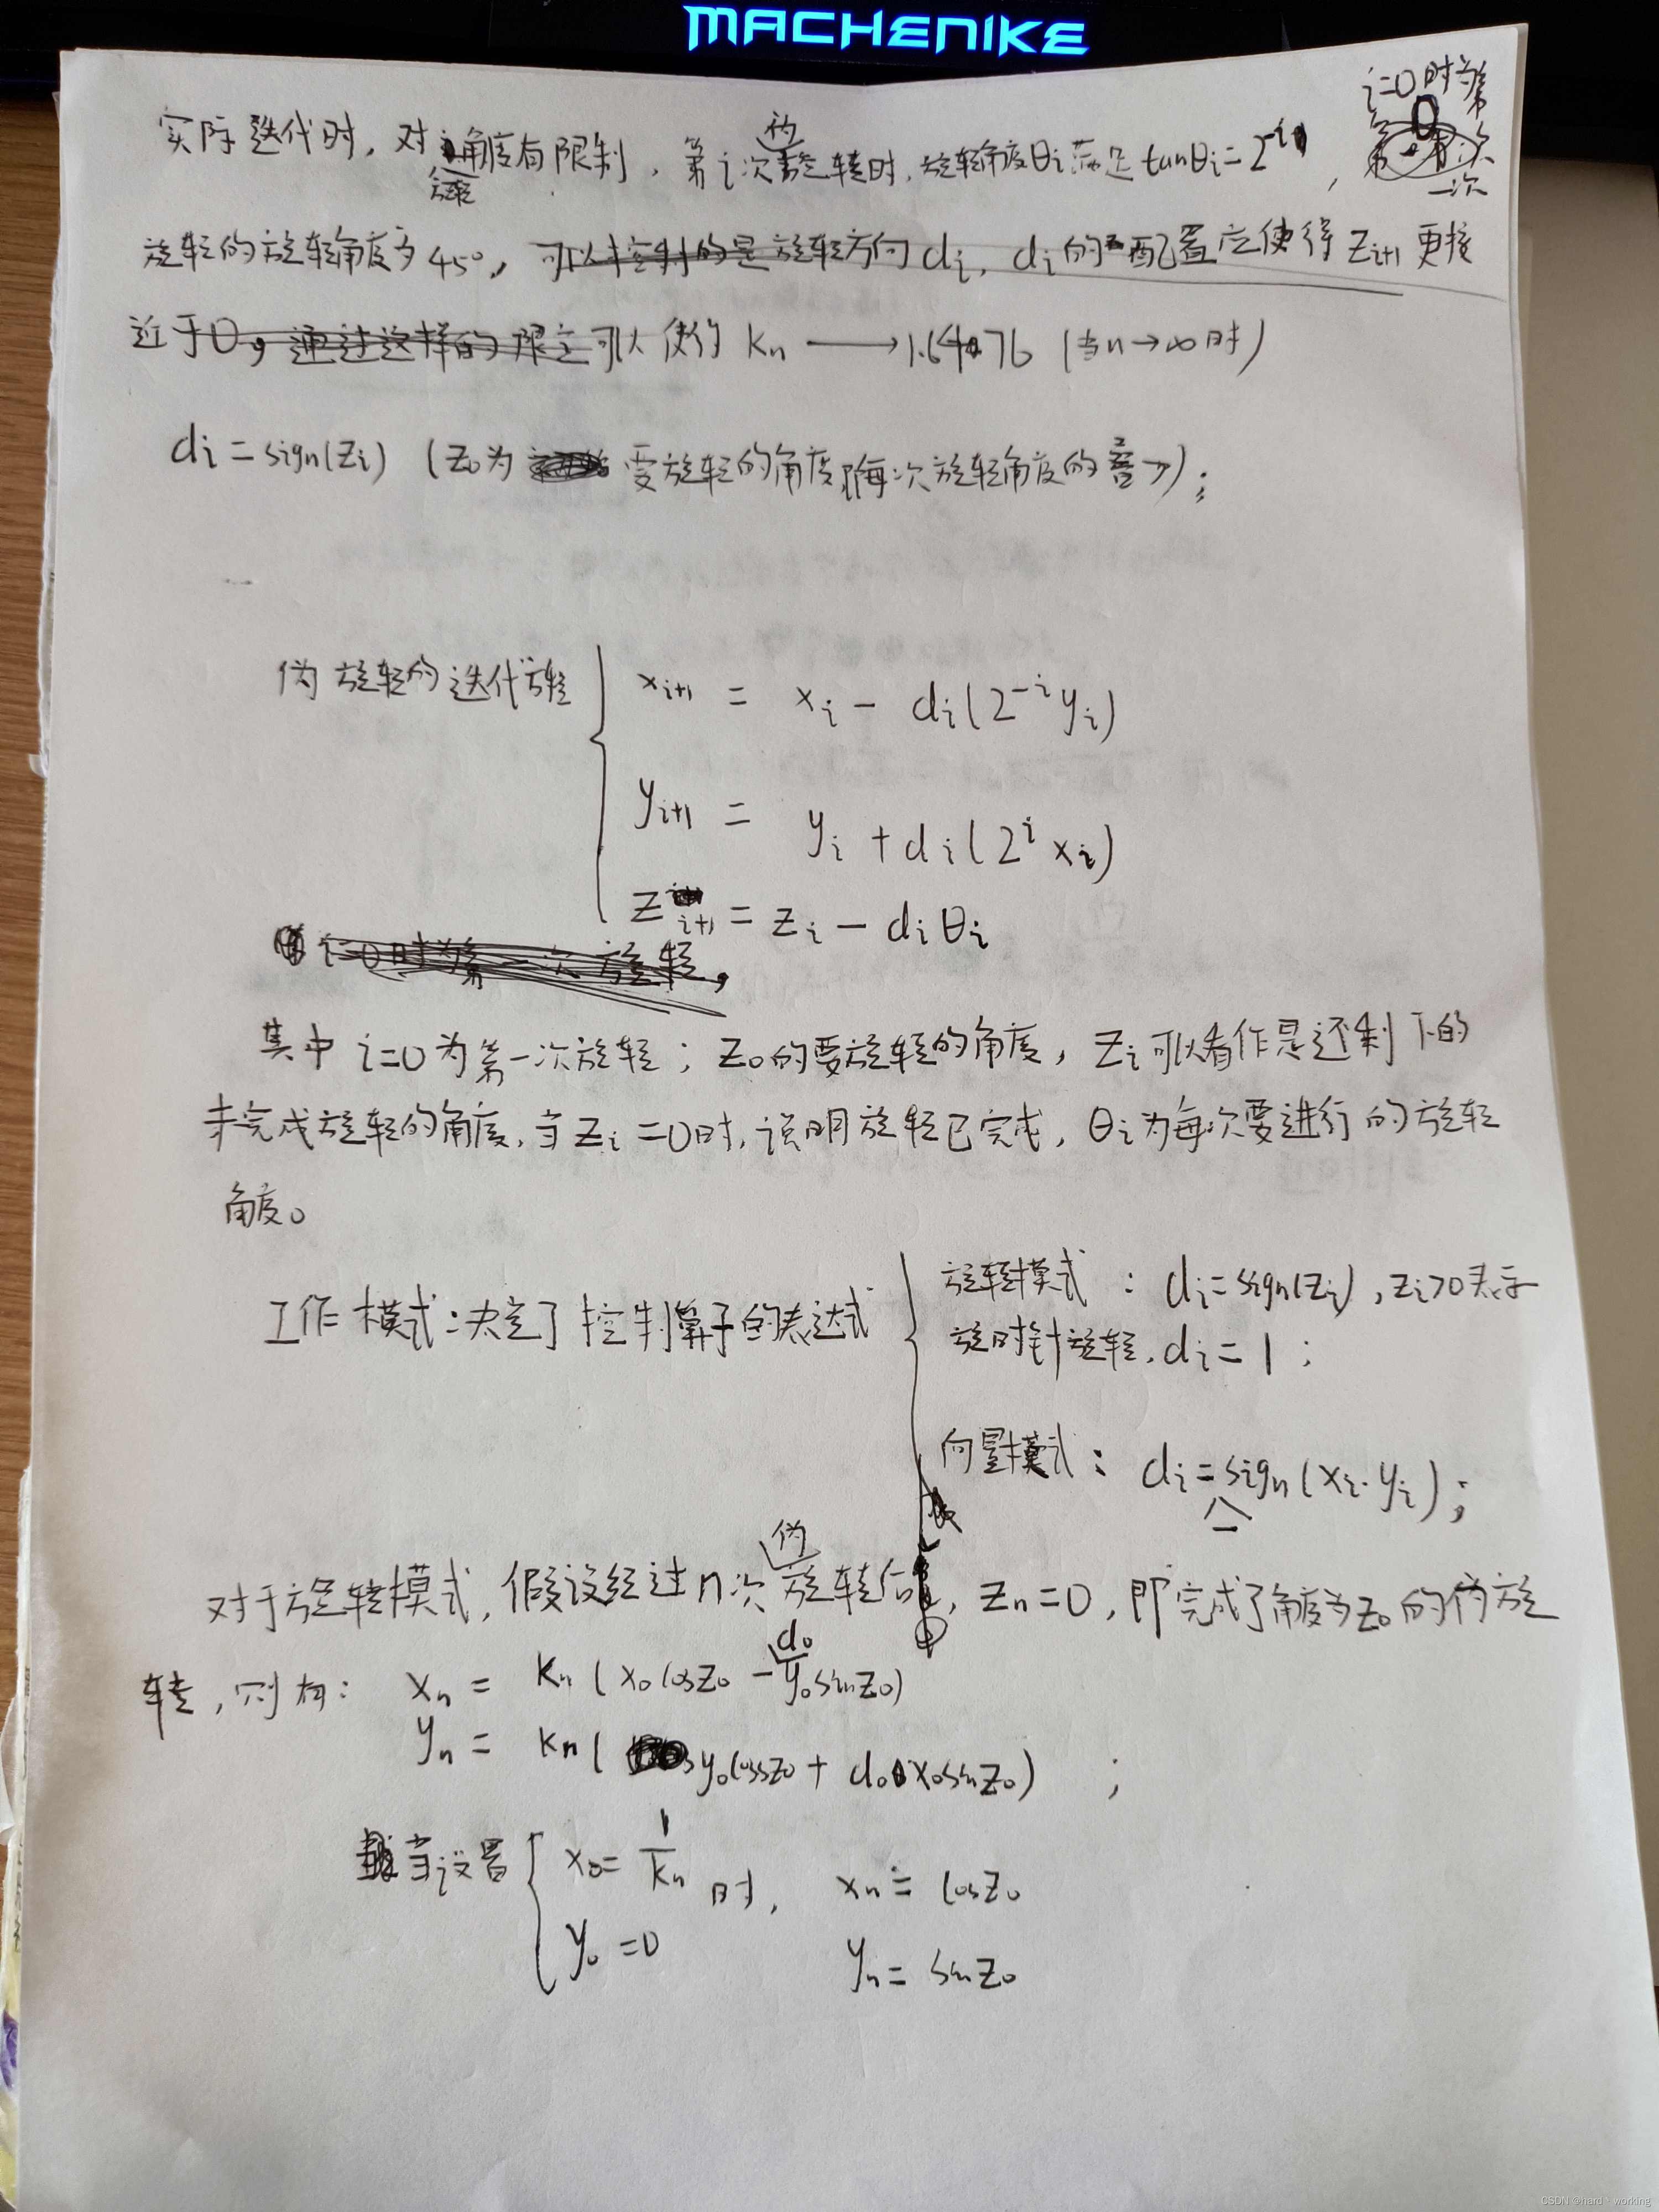 MACHENIKE
i=0时为第
一次
实际迭代时，对角度有限制，第i次伪旋转时，旋转角度θi满足tanθi=2^-i，
旋转的旋转角度为45°，可以控制的是旋转方向di，di的配置应使得Zi+1更接
近于0，通过这样的限定可以使得 Kn ⟶ 1.64676 (当n→∞时)
di = sign(Zi) (Z0为要旋转的角度,每次旋转角度的);
伪旋转的迭代方程
xi+1 = xi - di(2^-i yi)
yi+1 = yi + di(2^i xi)
Zi+1 = Zi - diθi
i=0时为第一次旋转,
其中i=0为第一次旋转；Z0的要旋转的角度，Zi可以看作是还剩下的
未完成旋转的角度,当Zi=0时,说明旋转已完成，θi为每次要进行的旋转
角度。
工作模式:决定了控制算子的表达式
旋转模式：di=sign(Zi),Zi>0表示
旋时针旋转,di=1;
向量模式：di=-sign(xi·yi);
对于旋转模式，假设经过n次伪旋转后，Zn=0，即完成了角度为Z0的伪旋
转，则有： xn = Kn(x0cosZ0 - d0y0sinZ0)
yn = Kn(y0cosZ0 + d0x0sinZ0) ;
当设置 x0=1/Kn 时， xn = cosZ0
y0=0 yn = sinZ0
CSDN @hard、working